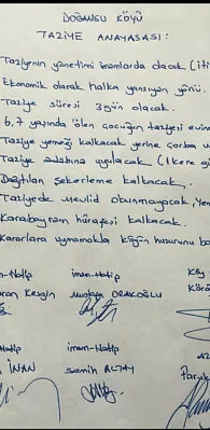 DOĞANSU KÖYÜ
TAZİYE ANAYASASI:
Taziyenin yönetimi imamlarda olacak (iti
Ekonomik olarak halka yansıyan yönü.
Taziye süresi 3 gün olacak.
6.7 yaşında ölen çocuğun taziyesi evine
Taziye yemeği kalkacak yerine çorba u
Taziye adabına uyulacak (1 kere g
Dağıtılan şekerleme kalkacak.
Taziyede Mevlid okunmayacak, Yer
Karabayram hurafesi kalkacak.
Kararlara uymamakla köyün huzurunu bo
m-Hatip imam-Hatip Köy
ran Keskin Mustafa ORAKOĞLU
Hatip imam-Hatip AZ
İNAN Semih ALTAY Faruk